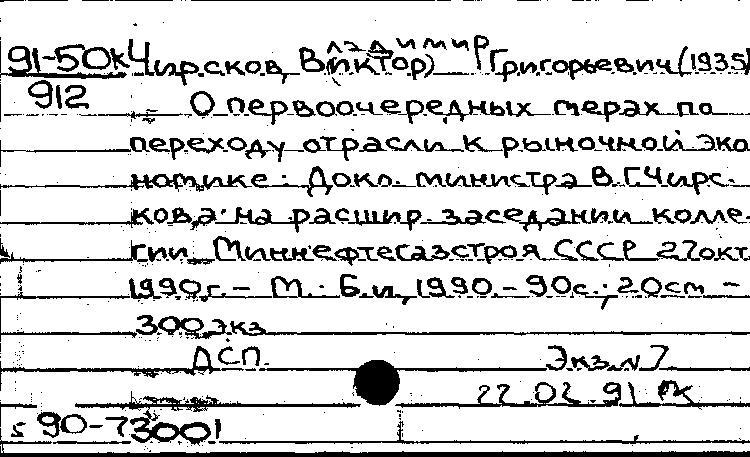 91-50к
912
Чирсков, В(иктор) ладимир Григорьевич (1935)
О первоочередных мерах по
переходу отрасли к рыночной эко
номике: Докл. министра В.Г.Чирс-
кова на расшир. заседании колле-
гии Миннефтегазстроя СССР 27 окт
1990г. - М.: Б.и, 1990. - 90с.; 20см -
300 экз
ДСП. Экз. N 7
22.02.91
s 90-73001